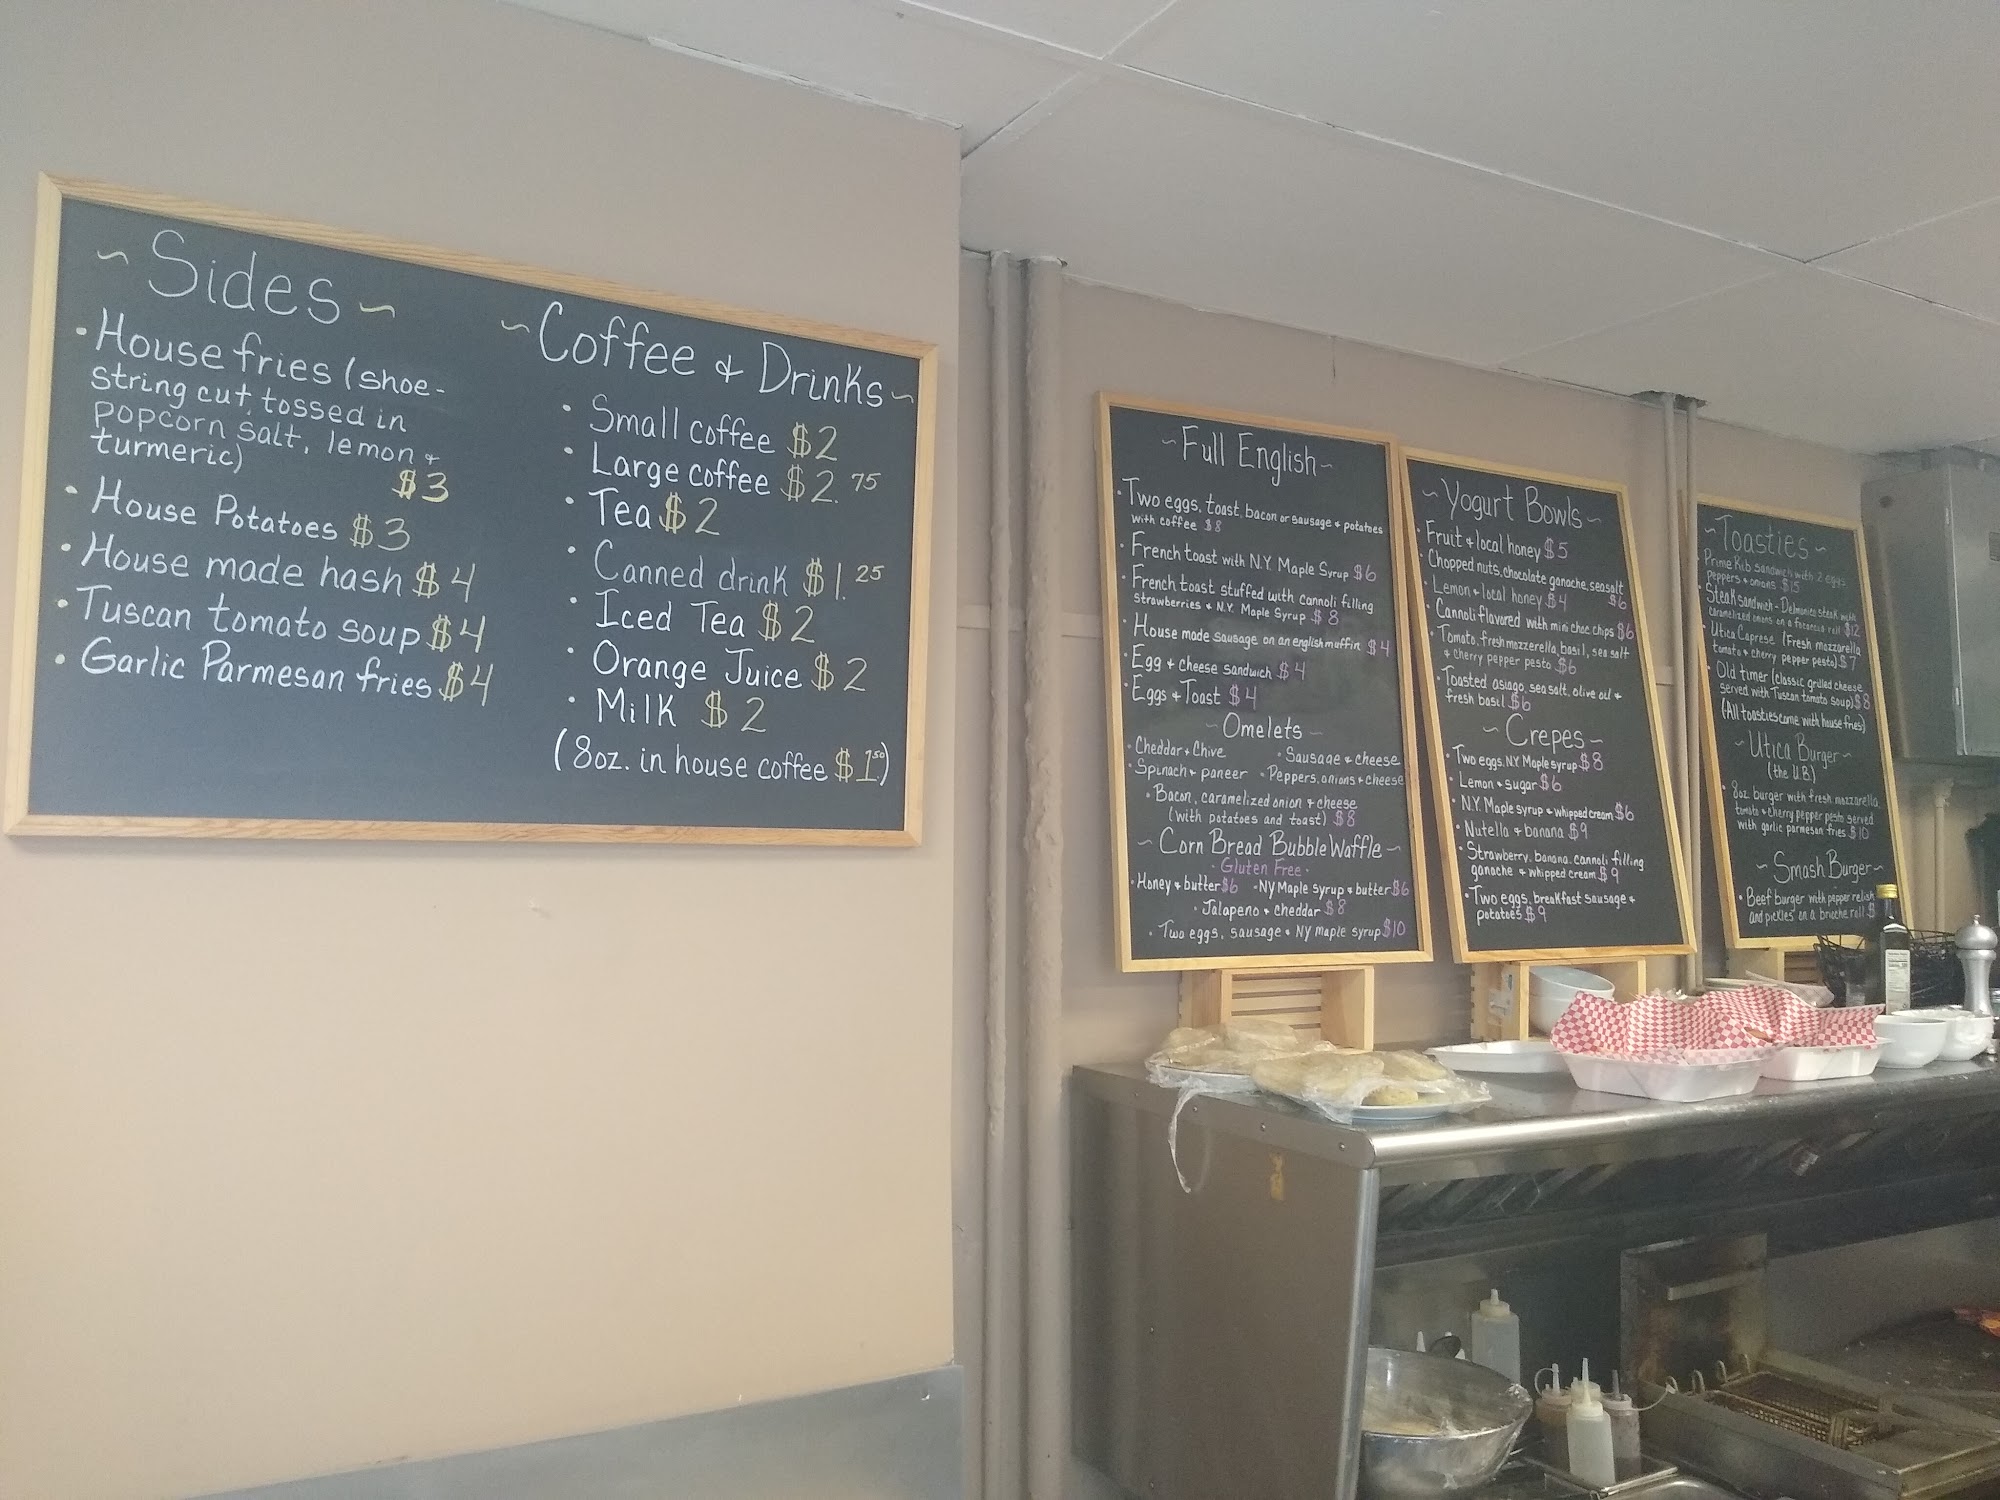 ~ Sides ~
• House fries (shoe-
string cut, tossed in
popcorn salt, lemon +
turmeric)
$3
• House Potatoes $3
• House made hash $4
• Tuscan tomato soup $4
• Garlic Parmesan fries $4
~ Coffee & Drinks ~
• Small coffee $2
• Large coffee $2.75
• Tea $2
• Canned drink $1.25
• Iced Tea $2
• Orange Juice $2
• Milk $2
(8oz. in house coffee $1.50)
~ Full English ~
• Two eggs, toast, bacon or sausage + potatoes
with coffee $8
• French toast with N.Y. Maple Syrup $6
• French toast stuffed with cannoli filling
strawberries + N.Y. Maple Syrup $8
• House made sausage on an english muffin $4
• Egg + cheese sandwich $4
• Eggs + Toast $4
~ Omelets ~
• Cheddar + Chive • Sausage + cheese
• Spinach + paneer • Peppers, onions + cheese
• Bacon, caramelized onion + cheese
(with potatoes and toast) $8
~ Corn Bread Bubble Waffle ~
• Gluten Free •
• Honey + butter $6 • NY Maple syrup + butter $6
• Jalapeno + cheddar $8
• Two eggs, sausage + NY maple syrup $10
~ Yogurt Bowls ~
• Fruit + local honey $5
• Chopped nuts, chocolate ganache, sea salt
$6
• Lemon + local honey $4
• Cannoli flavored with mini choc. chips $6
• Tomato, fresh mozzerella, basil, sea salt
+ cherry pepper pesto $6
• Toasted asiago, sea salt, olive oil +
fresh basil $6
~ Crepes ~
• Two eggs, N.Y. Maple syrup $8
• Lemon + sugar $6
• N.Y. Maple syrup + whipped cream $6
• Nutella + banana $9
• Strawberry, banana, cannoli filling
ganache + whipped cream $9
• Two eggs, breakfast sausage +
potatoes $9
~ Toasties ~
Prime Rib sandwich with 2 eggs
peppers + onions $15
• Steak sandwich - Delmonico steak with
caramelized onions on a focaccia roll $12
• Utica Caprese (Fresh mozzarella
tomato + cherry pepper pesto) $7
• Old timer (classic grilled cheese
served with Tuscan tomato soup) $8
(All toasties come with house fries)
~ Utica Burger ~
(the U.B.)
• 8oz burger with fresh mozzarella,
tomato + cherry pepper pesto served
with garlic parmesan fries $10
~ Smash Burger ~
• Beef burger with pepper relish
and pickles on a brioche roll $